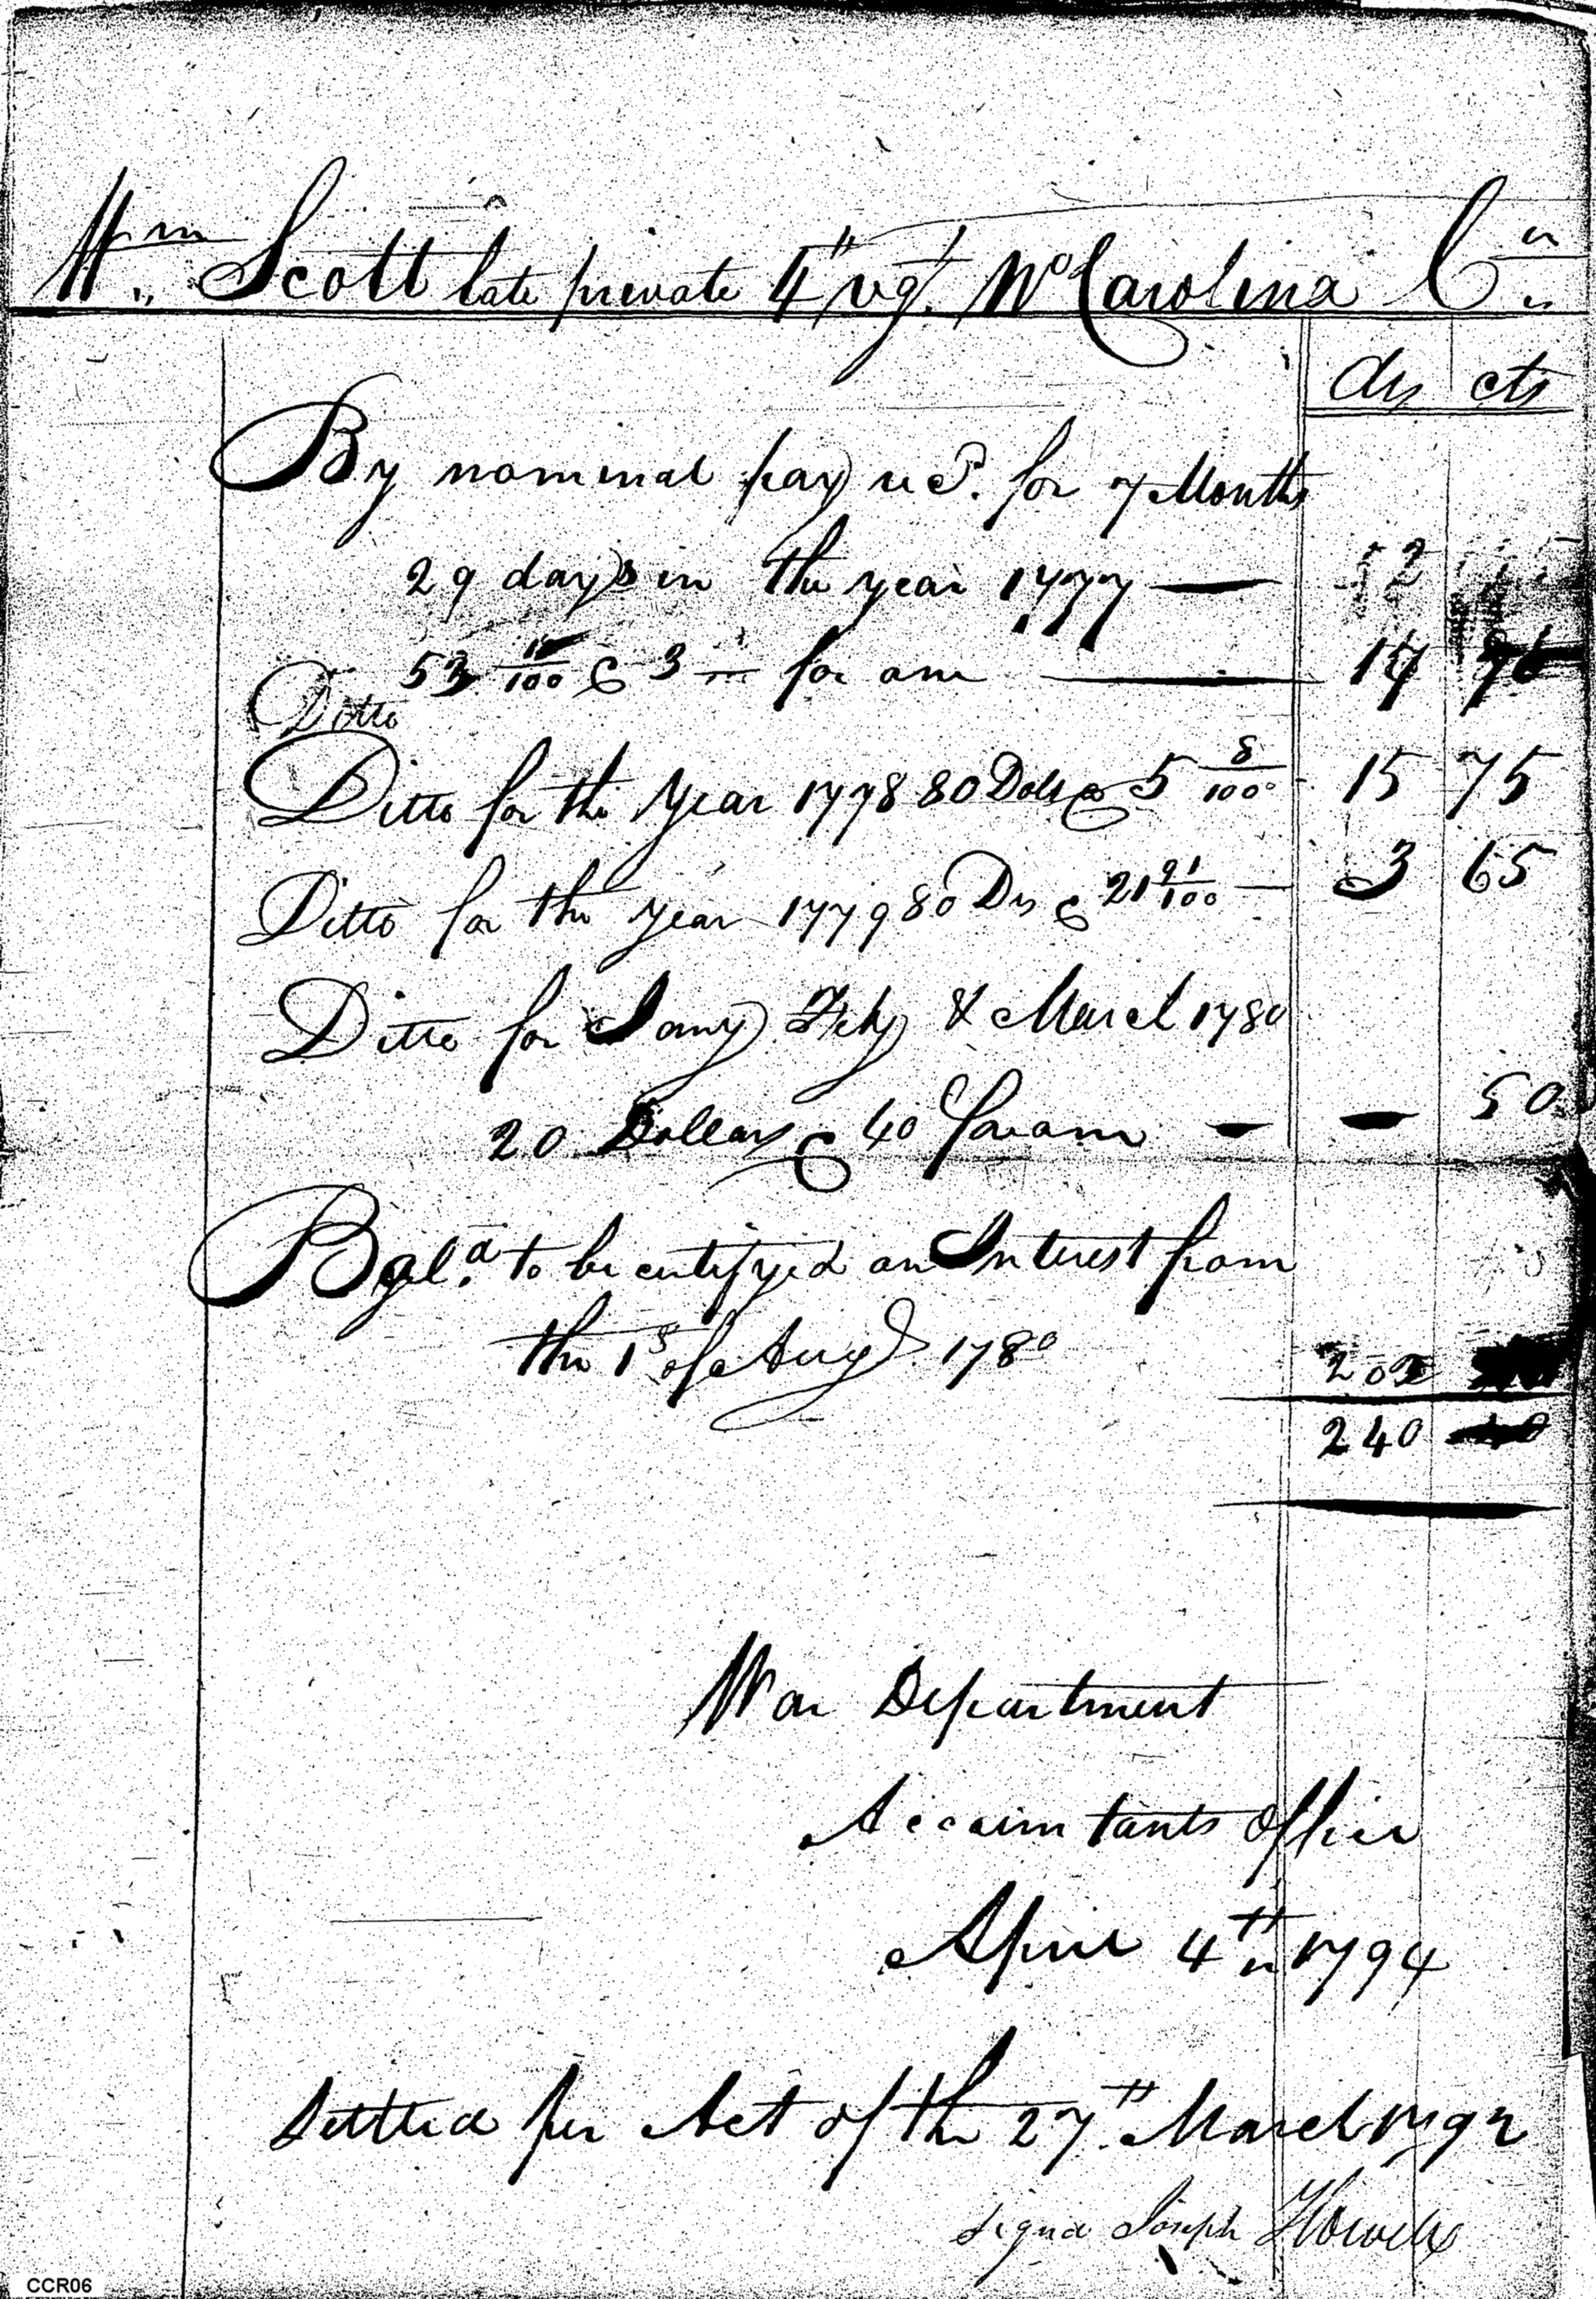 Wm. Scott late private 4th regt. No Carolina Cr
drs cts
By nominal pay recd. for 7 Months
29 days in the year 1777 — 52
Ditto 53 10/100 @ 3 for one — 17 70
Ditto for the Year 1778 80 Dols @ 5 8/100 15 75
Ditto for the year 1779 80 Drs @ 21 91/100 — 3 65
Ditto for Jany Feby & March 1780
20 Dollars @ 40 for one — — 50
Bal.a to be certifyed on Interest from
the 1s of Augt 1780 202
240
War Department
Accountants Office
April 4th 1794
Settled per Act of the 27th March 1792
signd Joseph Howell
CCR06